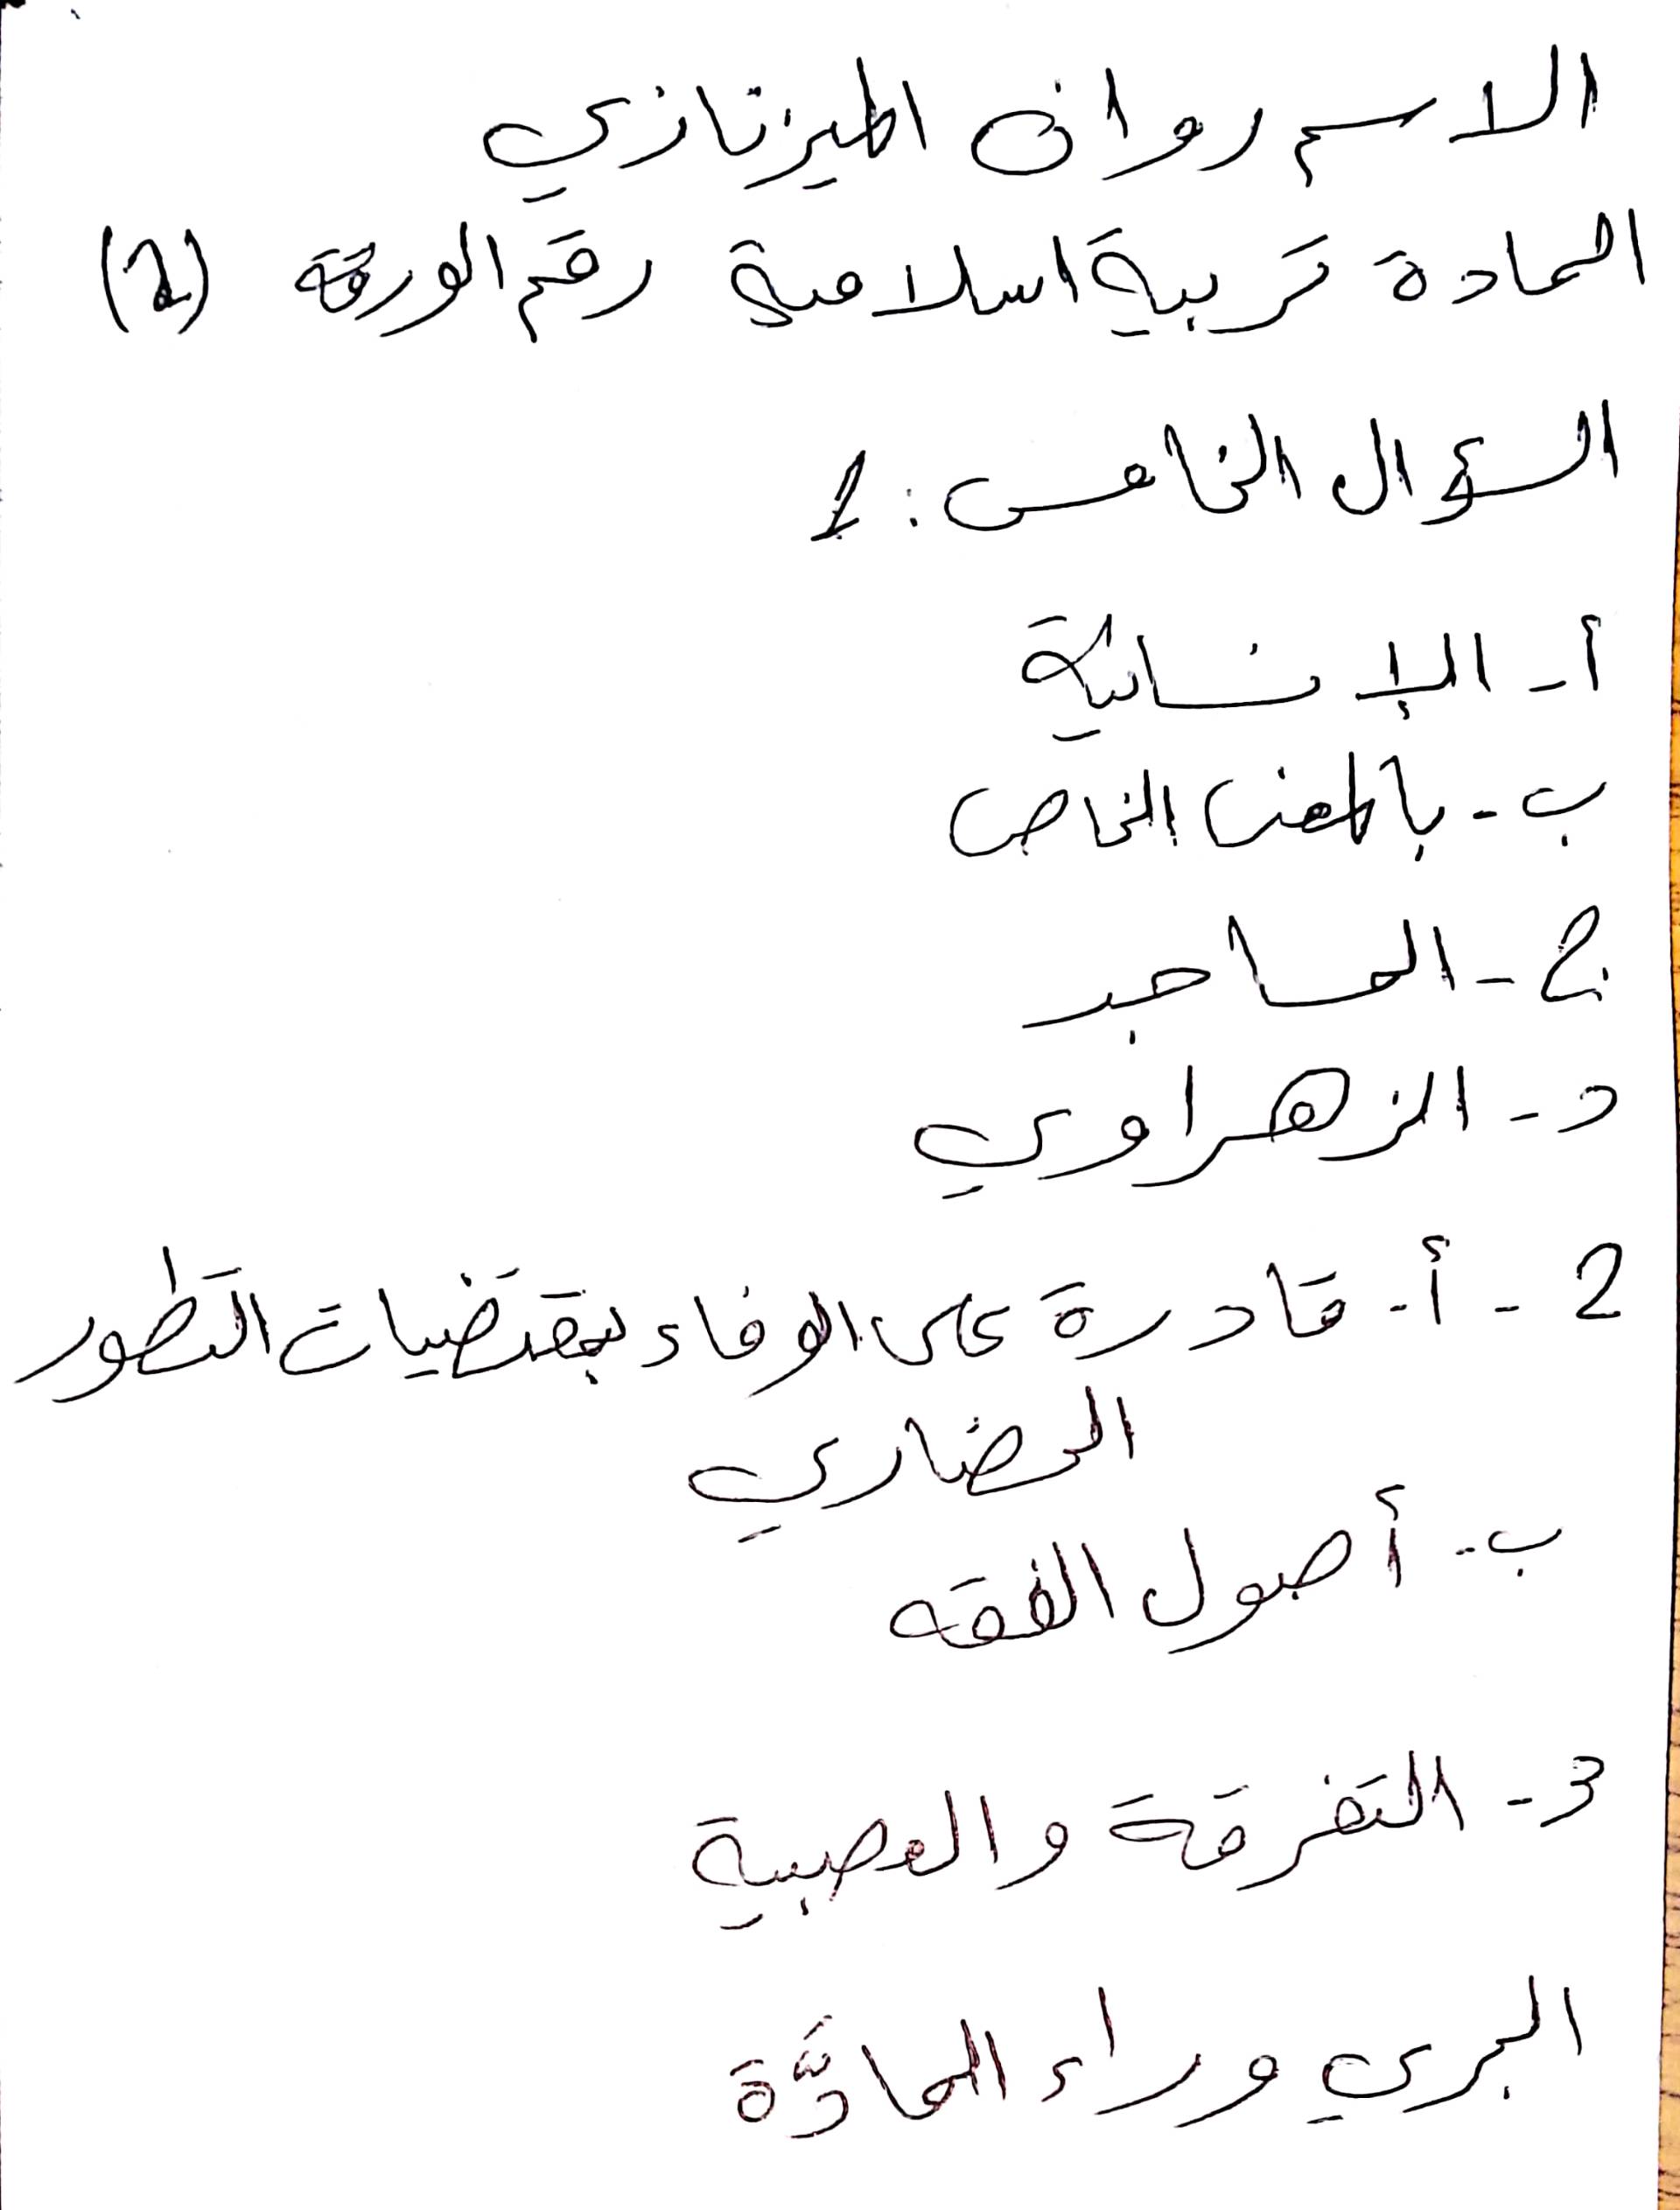 الاسم روان الميزنازي
المادة تربية اسلامية رقم الورقة (2)
السؤال الخامس : 1
أ - الإنسانية
ب - بالمعنى الخاص
ج - المساجد
د - الزهراوي
2 - أ - قادرة على الوفاء بمقتضيات التطور
الحضاري
ب - أصول الفقه
3 - التفرقة والعصبية
الجري وراء المادَّة